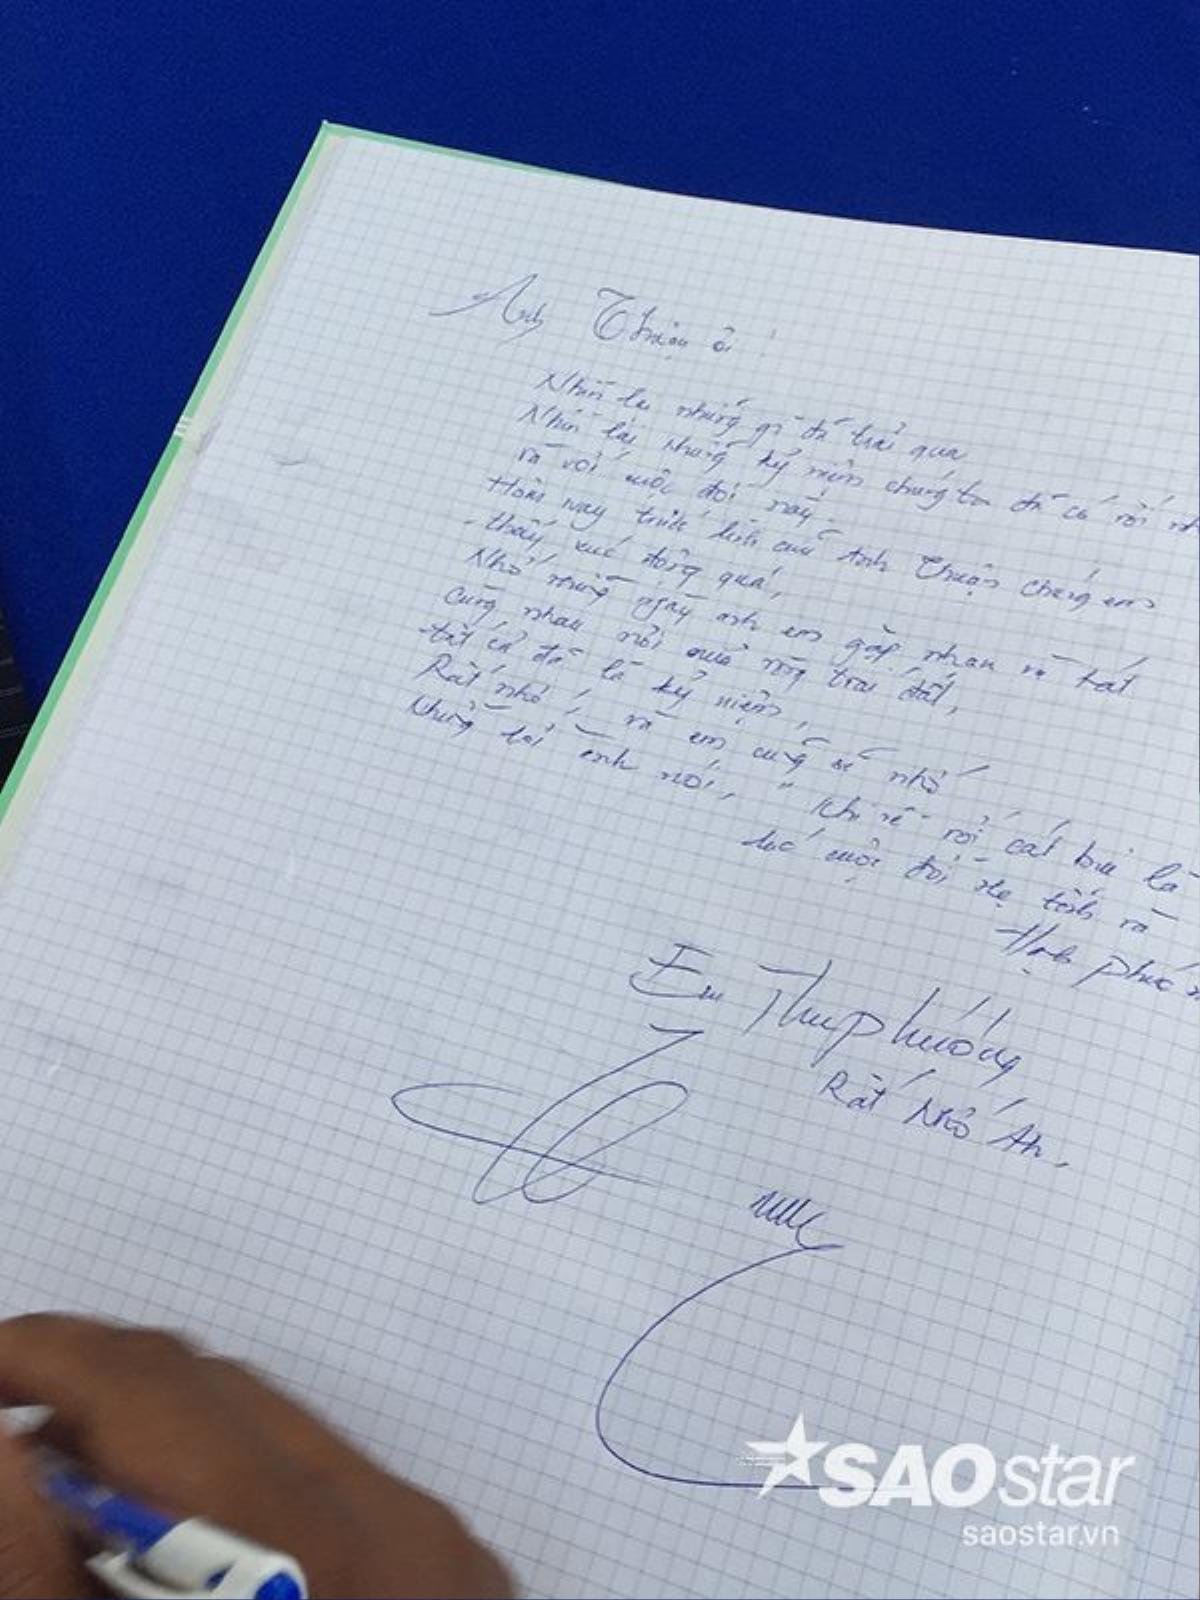 Anh Thuận ơi!
Nhìn lại những gì đã trải qua
Nhìn lại những kỷ niệm chúng ta đã có rồi
và với cuộc đời này.
Hôm nay trước linh cửu Anh Thuận chúng em
thấy xúc động quá,
Nhớ những ngày anh em gặp nhau và hát
cùng nhau nối quả trái đất,
tất cả đã là kỷ niệm,
Rất nhớ, và em cũng sẽ nhớ
Những lời anh nói, " Khi về rồi cát bụi là
lúc cuộc đời nhẹ tênh và
Hạnh phúc
Em Thu Phương
Rất Nhớ Anh.
SAOstar
saostar.vn